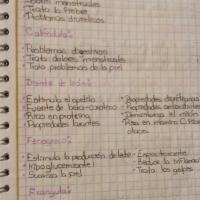 Dolores menstruales
• Trata la fiebre
• Problemas diureticos
Caléndula:
• Problemas digestivos
• Trata dolores menstruales
• Trata problemas de la piel
Diente de león:
• Estimula el apetito
• Fuente de beta-caroteno
• Rica en proteína
• Propiedades laxantes
• Propiedades diuréticas
• Propiedades
• Rica en vitamina C
Fenogreco:
• Estimula la producción de leche
• Hipoglucemiante
• Suaviza la piel
• Expectorante
• Reduce la
• Trata los golpes
Frangula: